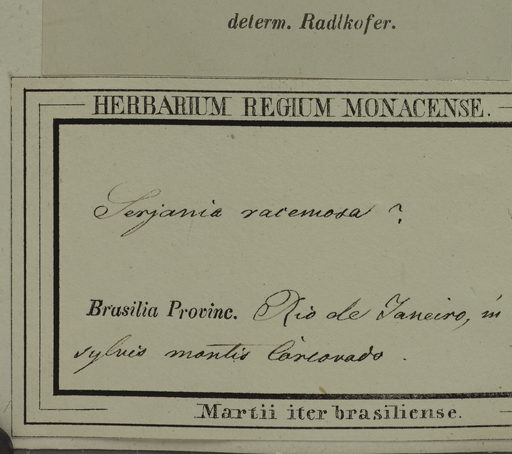 determ. Radlkofer.
HERBARIUM REGIUM MONACENSE.
Serjania racemosa ?
Brasilia Provinc. Rio de Janeiro, in
sylvis montis Corcovado .
Martii iter brasiliense.